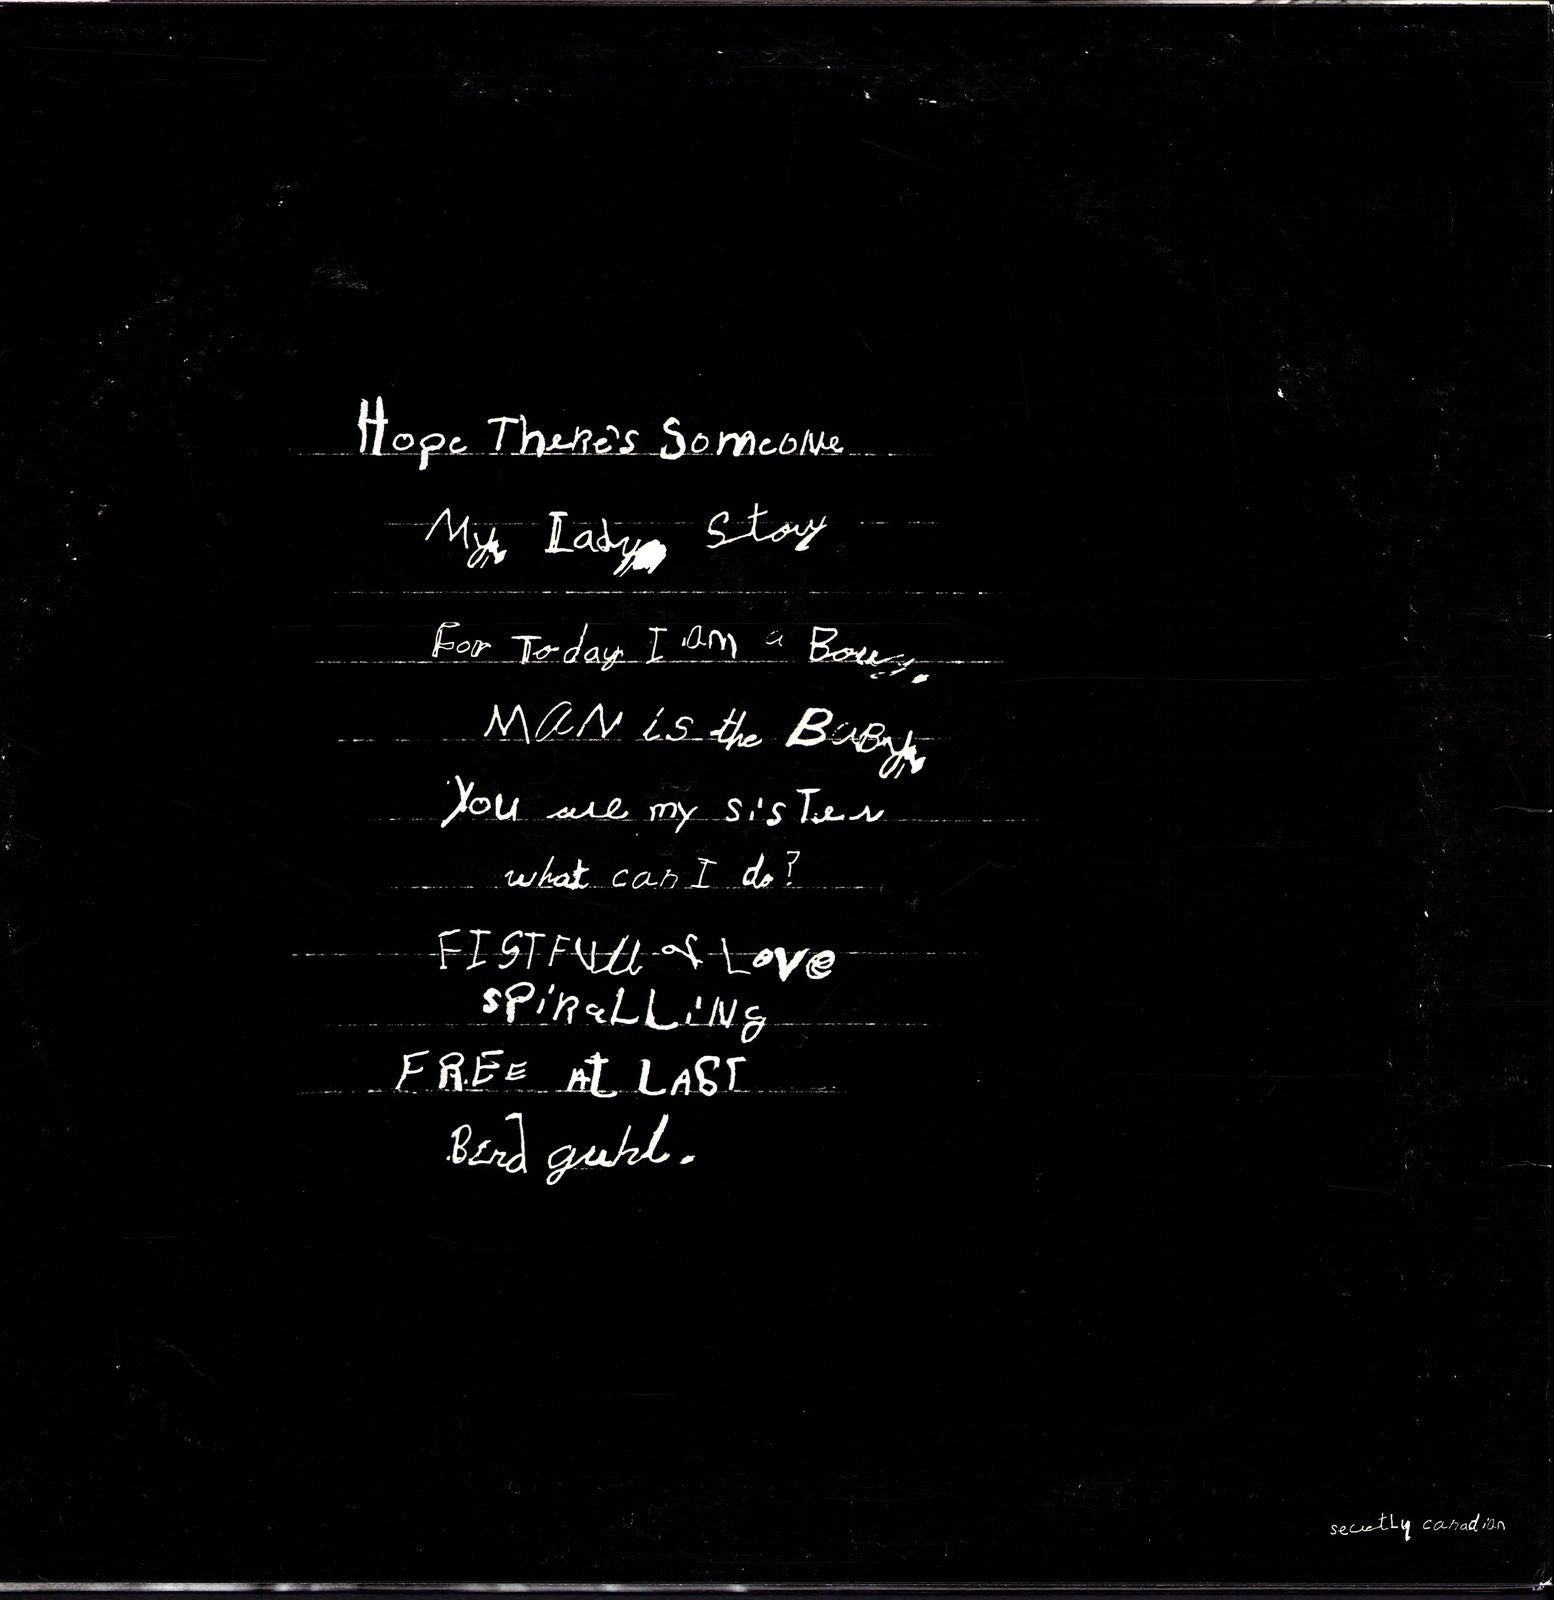 Hope There's Someone
My Lady Story
For Today I am a Boy
MAN is the BaBy
You are my sisTer
what can I do?
FISTFUll of Love
sPiRaLLiNg
FREE At LAST
Bird guhl.
secretly canadian